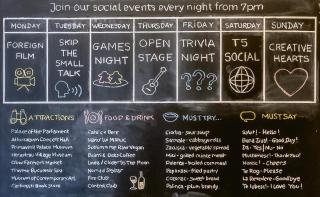 Join our social events every night from 7pm
MONDAY TUESDAY WEDNESDAY THURSDAY FRIDAY SATURDAY SUNDAY
FOREIGN FILM
SKIP THE SMALL TALK
GAMES NIGHT
OPEN STAGE
TRIVIA NIGHT
T5 SOCIAL
CREATIVE HEARTS
???
ATTRACTIONS
Palace of the Parliament
Athenaeum Concert Hall
Primaverii Palace Museum
Herastrau Village Museum
Glow
Therme Bucuresti Spa
Museum of Communism
Carturesti Book Store
FOOD & DRINK
MUST TRY...
Ciorba - sour soup
Sarmale - cabbage rolls
Zacusca - vegetable spread
Mici - grilled mince meat
Polenta - boiled cornmeal
Papanasi - fried pastry
Cozonac - sweet bread
Palinca - plum brandy
MUST SAY
Salut! - Hello!
Buna Ziua! - Good Day!
Da - Yes | Nu - No
Multumesc! - Thank You!
Noroc! - Cheers
Te Rog - Please
La Revedere - Goodbye
Te Iubesc! - I Love You!